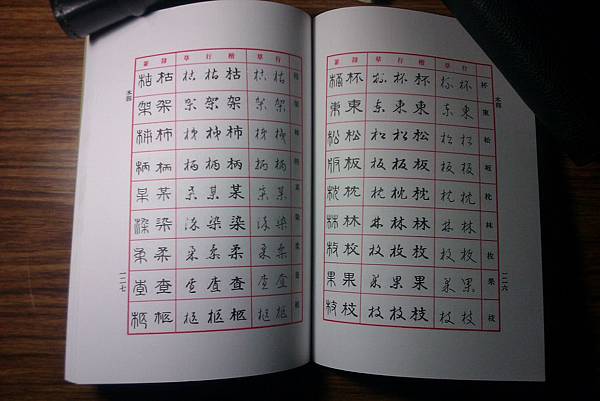 木部
行草 楷行草 隸篆
杯 杯杯 杯杯杯 杯杯
東 東東 東東東 東東
松 松松 松松松 松松
板 板板 板板板 板板
枕 枕枕 枕枕枕 枕枕
林 林林 林林林 林林
枚 枚枚 枚枚枚 枚枚
果 果果 果果果 果果
枝 枝枝 枝枝枝 枝枝
一二六
行草 楷行草 隸篆
枯 枯枯 枯枯枯 枯枯
架 架架 架架架 架架
柿 柿柿 柿柿柿 柿柿
柄 柄柄 柄柄柄 柄柄
某 某某 某某某 某某
染 染染 染染染 染染
柔 柔柔 柔柔柔 柔柔
查 查查 查查查 查查
柩 柩柩 柩柩柩 柩柩
木部
一二七